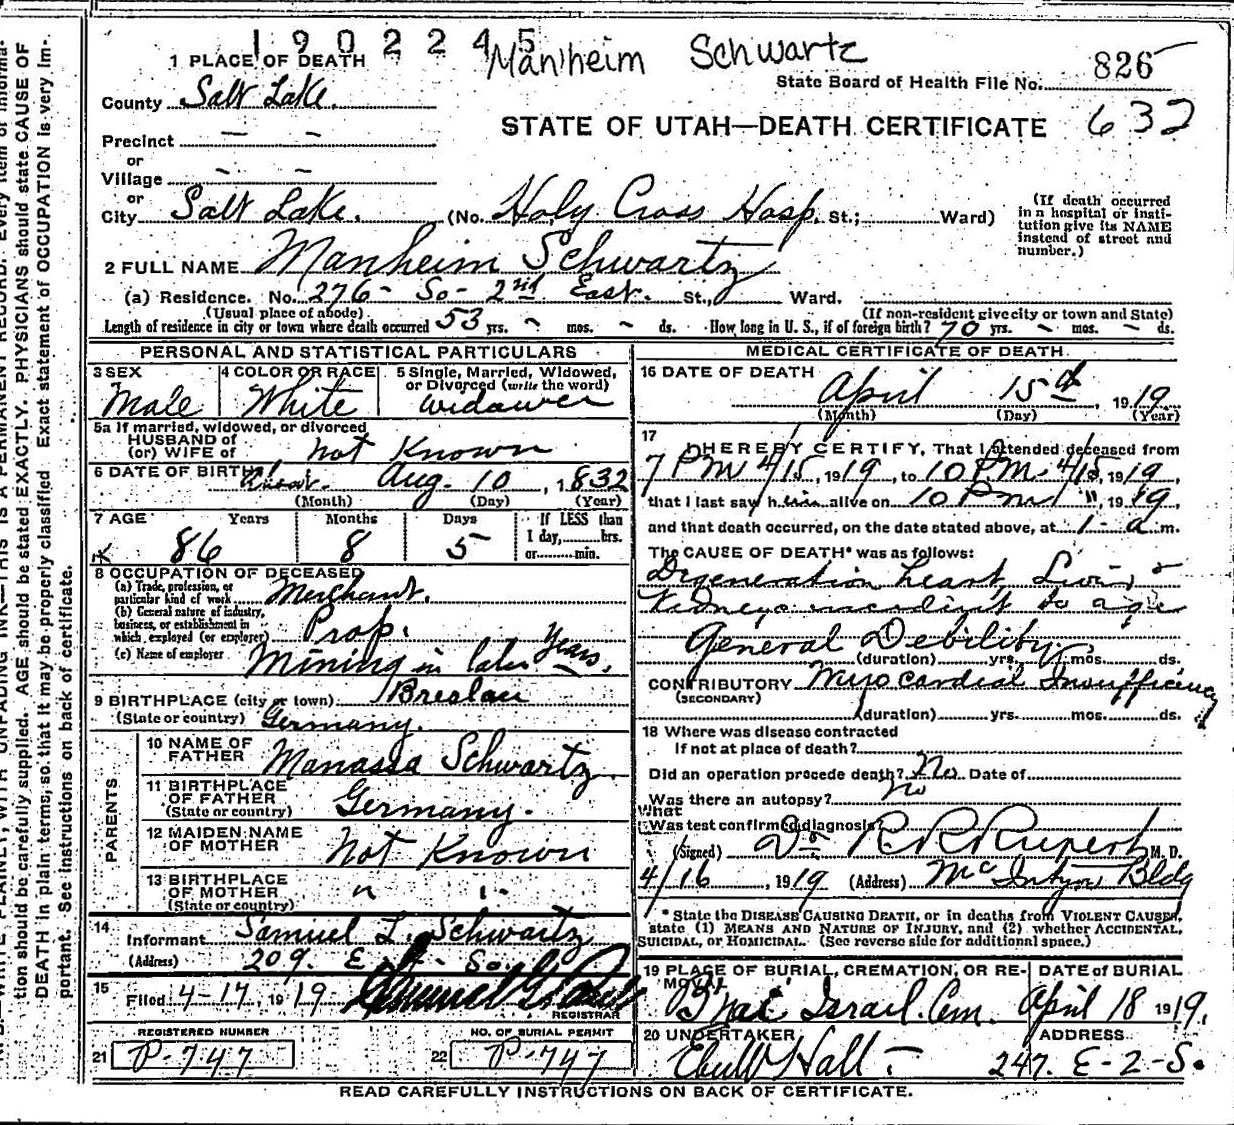 1902245
Manheim Schwartz
826
1 PLACE OF DEATH
State Board of Health File No.
County Salt Lake.
STATE OF UTAH—DEATH CERTIFICATE 632
Precinct — —
or
Village - -
or
City Salt Lake. (No. Holy Cross Hosp. St.; Ward)
(If death occurred in a hospital or institution give its NAME instead of street and number.)
2 FULL NAME Manheim Schwartz
(a) Residence. No. 276- So- 2nd East. St., Ward.
(Usual place of abode) (If non-resident give city or town and State)
Length of residence in city or town where death occurred 53 yrs. - mos. - ds. How long in U. S., if of foreign birth? 70 yrs. - mos. - ds.
PERSONAL AND STATISTICAL PARTICULARS
3 SEX Male
4 COLOR OR RACE White
5 Single, Married, Widowed, or Divorced (write the word) Widower
5a If married, widowed, or divorced
HUSBAND of
(or) WIFE of Not Known
6 DATE OF BIRTH Aug. 10, 1832
(Month) (Day) (Year)
7 AGE Years Months Days If LESS than 1 day, hrs. or min.
86 8 5
8 OCCUPATION OF DECEASED
(a) Trade, profession, or particular kind of work Merchant.
(b) General nature of industry, business, or establishment in which employed (or employer) Prop.
(c) Name of employer Mining in later Years.
9 BIRTHPLACE (city or town) Breslau
(State or country) Germany.
PARENTS
10 NAME OF FATHER Manassa Schwartz
11 BIRTHPLACE OF FATHER (State or country) Germany.
12 MAIDEN NAME OF MOTHER Not Known
13 BIRTHPLACE OF MOTHER (State or country) " "
14 Informant Samuel L. Schwartz
(Address) 209. E. So.
15 Filed 4-17, 1919
REGISTRAR
REGISTERED NUMBER NO. OF BURIAL PERMIT
21 P-747 22 P-747
MEDICAL CERTIFICATE OF DEATH
16 DATE OF DEATH
April 15th, 1919
(Month) (Day) (Year)
17 I HEREBY CERTIFY, That I attended deceased from
7 PM 4/15, 1919, to 10 PM 4/15, 1919,
that I last saw him alive on 10 PM " 1919,
and that death occurred, on the date stated above, at 1- a m.
The CAUSE OF DEATH* was as follows:
Degeneration heart, Liver, &
Kidneys incident to age
General Debility
(duration) yrs. mos. ds.
CONTRIBUTORY Myocardial Insufficiency
(SECONDARY)
(duration) yrs. mos. ds.
18 Where was disease contracted
If not at place of death?
Did an operation precede death? No Date of
Was there an autopsy? no
What
Was test confirmed diagnosis?
(Signed) Dr R R Rupert M. D.
4/16, 1919 (Address) McIntyre Bldg
* State the DISEASE CAUSING DEATH, or in deaths from VIOLENT CAUSES,
state (1) MEANS AND NATURE OF INJURY, and (2) whether ACCIDENTAL,
SUICIDAL, or HOMICIDAL. (See reverse side for additional space.)
19 PLACE OF BURIAL, CREMATION, OR REMOVAL DATE of BURIAL
Bnai Israel Cem. April 18 1919.
20 UNDERTAKER ADDRESS
Hall - 247. E-2-S.
READ CAREFULLY INSTRUCTIONS ON BACK OF CERTIFICATE.
tion should be carefully supplied. AGE should be stated EXACTLY. PHYSICIANS should state CAUSE OF
DEATH in plain terms, so that it may be properly classified. Exact statement of OCCUPATION is very im-
portant. See instructions on back of certificate.